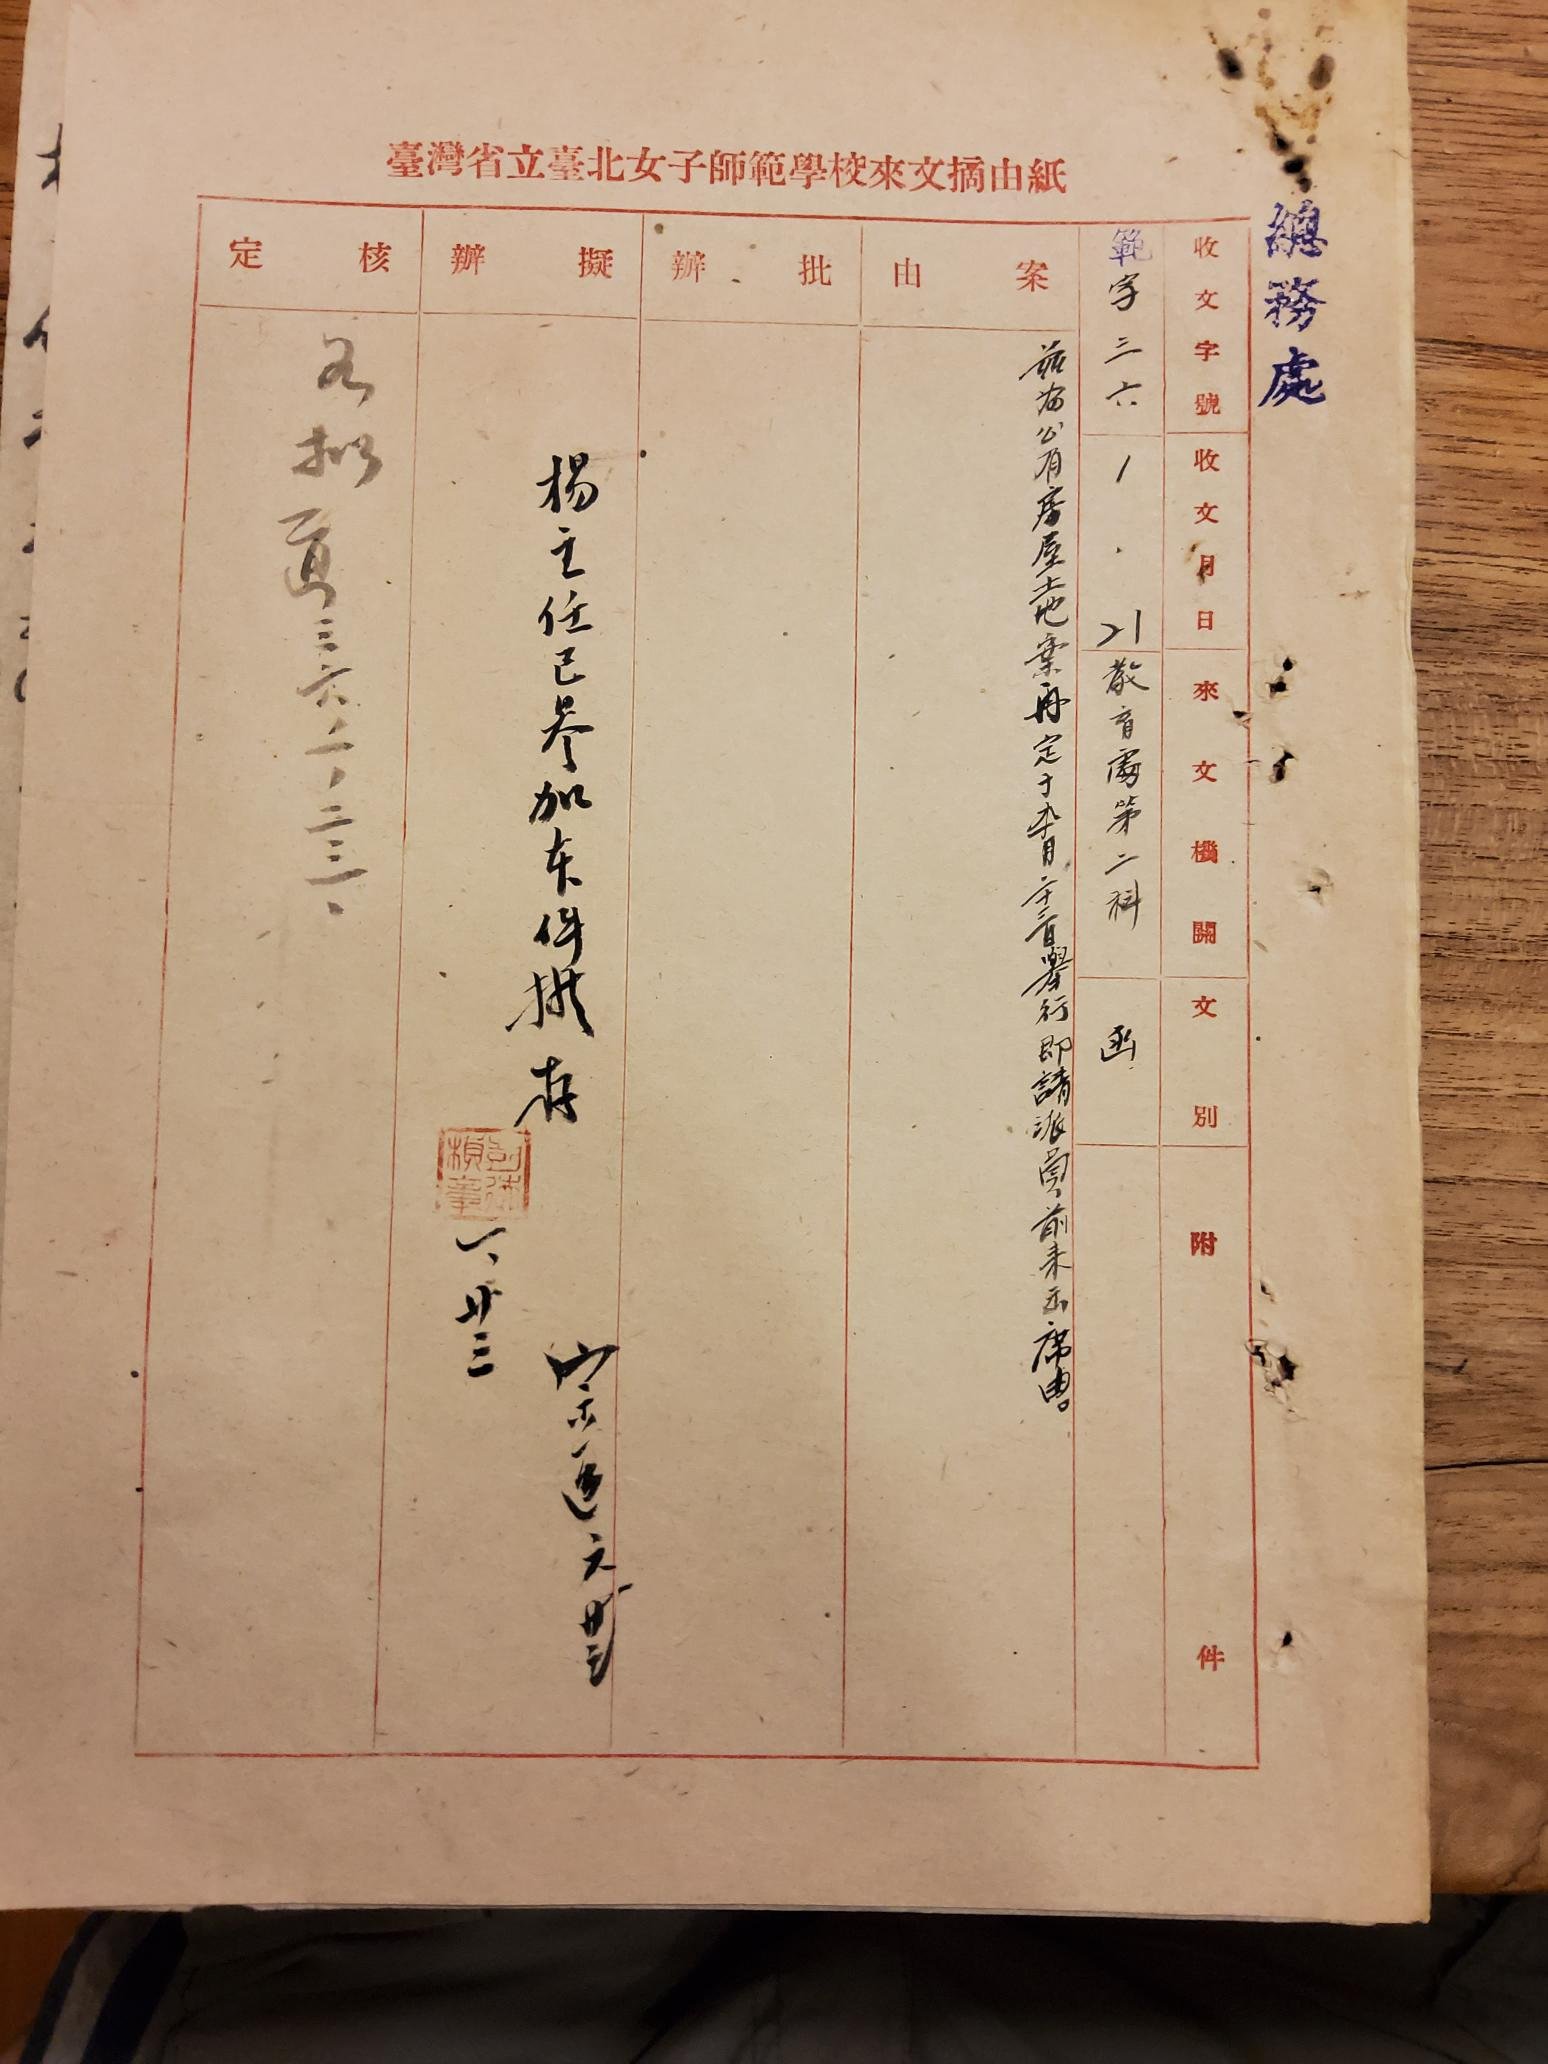 臺灣省立臺北女子師範學校來文摘由紙
總務處
收文字號
範字三六
收文月日
1.21
來文機關
教育處第二科
文別
函
附件
案由
茲為公有房屋土地案再定于本月二十三日舉行即請派員前来出席由
批辦
擬辦
楊主任已參加本件擬存
一、廿三
核定
如擬
三六、一、二三、